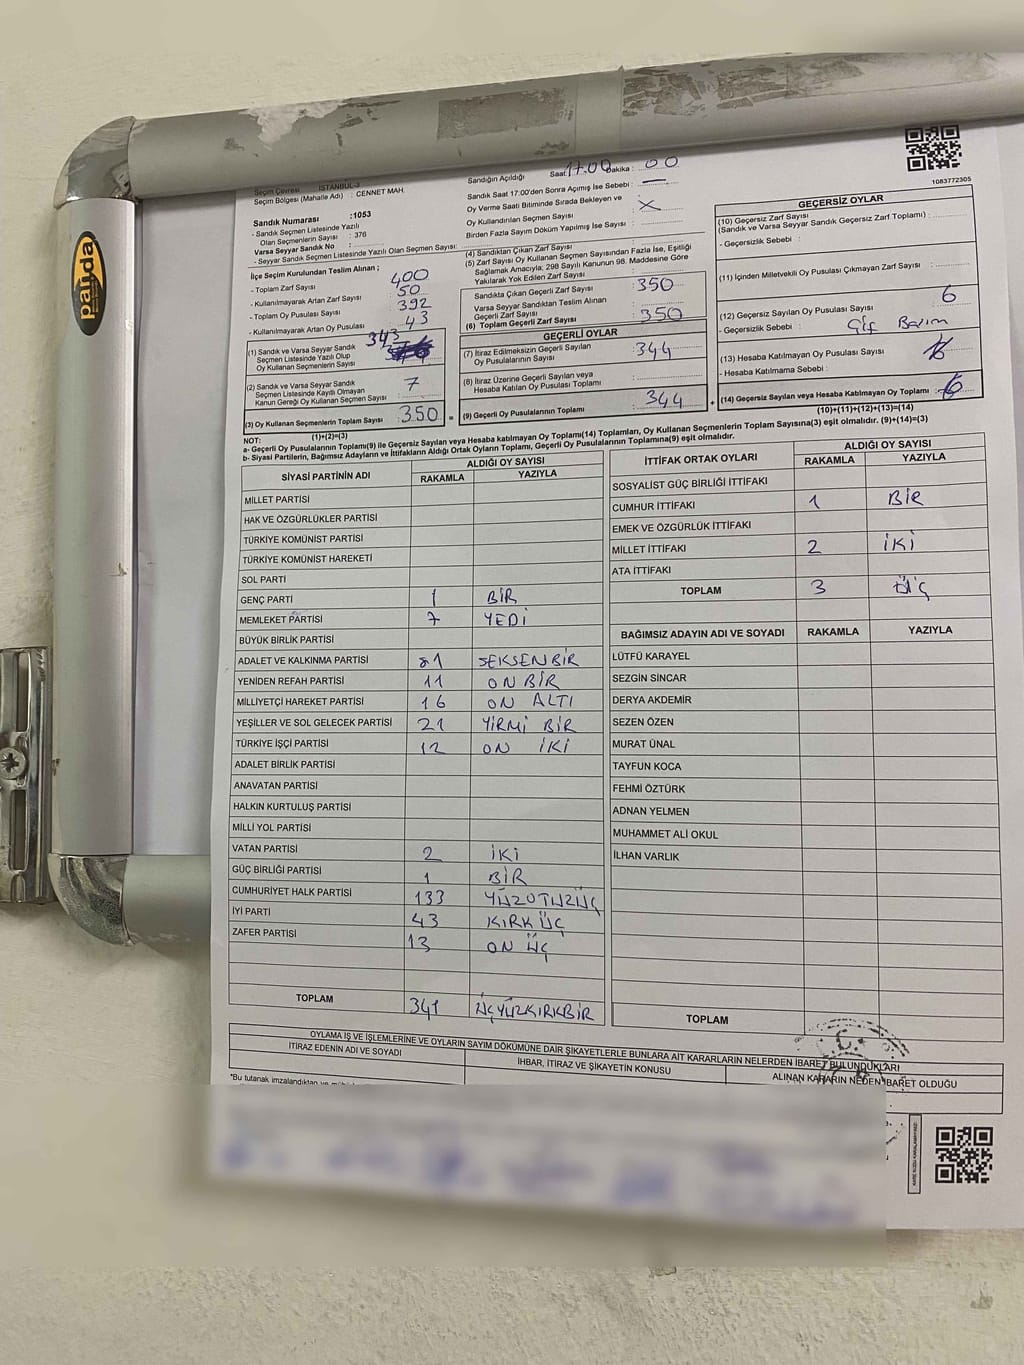 palida
Seçim Çevresi : İSTANBUL-3
Seçim Bölgesi (Mahalle Adı) : CENNET MAH.
Sandık Numarası :1053
- Sandık Seçmen Listesinde Yazılı
Olan Seçmenlerin Sayısı : 376
Varsa Seyyar Sandık No :
- Seyyar Sandık Seçmen Listesinde Yazılı Olan Seçmen Sayısı:
İlçe Seçim Kurulundan Teslim Alınan ;
- Toplam Zarf Sayısı : 400
- Kullanılmayarak Artan Zarf Sayısı : 50
- Toplam Oy Pusulası Sayısı : 392
- Kullanılmayarak Artan Oy Pusulası : 43
(1) Sandık ve Varsa Seyyar Sandık
Seçmen Listesinde Yazılı Olup
Oy Kullanan Seçmenlerin Sayısı : 343
(2) Sandık ve Varsa Seyyar Sandık
Seçmen Listesinde Kayıtlı Olmayan
Kanun Gereği Oy Kullanan Seçmen Sayısı : 7
(3) Oy Kullanan Seçmenlerin Toplam Sayısı : 350
(1)+(2)=(3)
Sandığın Açıldığı Saat: 17.00 Dakika : 00
Sandık Saat 17:00'den Sonra Açılmış İse Sebebi : —
Oy Verme Saati Bitiminde Sırada Bekleyen ve
Oy Kullandırılan Seçmen Sayısı : X
Birden Fazla Sayım Döküm Yapılmış İse Sayısı :
(4) Sandıktan Çıkan Zarf Sayısı :
(5) Zarf Sayısı Oy Kullanan Seçmen Sayısından Fazla İse, Eşitliği
Sağlamak Amacıyla; 298 Sayılı Kanunun 98. Maddesine Göre
Yakılarak Yok Edilen Zarf Sayısı :
Sandıkta Çıkan Geçerli Zarf Sayısı : 350
Varsa Seyyar Sandıktan Teslim Alınan
Geçerli Zarf Sayısı :
(6) Toplam Geçerli Zarf Sayısı : 350
GEÇERLİ OYLAR
(7) İtiraz Edilmeksizin Geçerli Sayılan
Oy Pusulalarının Sayısı : 344
(8) İtiraz Üzerine Geçerli Sayılan veya
Hesaba Katılan Oy Pusulası Toplamı :
(9) Geçerli Oy Pusulalarının Toplamı : 344
1083772305
GEÇERSİZ OYLAR
(10) Geçersiz Zarf Sayısı
(Sandık ve Varsa Seyyar Sandık Geçersiz Zarf Toplamı) :
- Geçersizlik Sebebi :
(11) İçinden Milletvekili Oy Pusulası Çıkmayan Zarf Sayısı :
(12) Geçersiz Sayılan Oy Pusulası Sayısı : 6
- Geçersizlik Sebebi :
(13) Hesaba Katılmayan Oy Pusulası Sayısı :
- Hesaba Katılmama Sebebi :
(14) Geçersiz Sayılan veya Hesaba Katılmayan Oy Toplamı : 6
(10)+(11)+(12)+(13)=(14)
NOT:
a- Geçerli Oy Pusulalarının Toplamı(9) ile Geçersiz Sayılan veya Hesaba Katılmayan Oy Toplamı(14) Toplamları, Oy Kullanan Seçmenlerin Toplam Sayısına(3) eşit olmalıdır. (9)+(14)=(3)
b- Siyasi Partilerin, Bağımsız Adayların ve İttifakların Aldığı Ortak Oyların Toplamı, Geçerli Oy Pusulalarının Toplamına(9) eşit olmalıdır.
SİYASİ PARTİNİN ADI ALDIĞI OY SAYISI
RAKAMLA YAZIYLA
MİLLET PARTİSİ
HAK VE ÖZGÜRLÜKLER PARTİSİ
TÜRKİYE KOMÜNİST PARTİSİ
TÜRKİYE KOMÜNİST HAREKETİ
SOL PARTİ
GENÇ PARTİ 1 BİR
MEMLEKET PARTİSİ 7 YEDİ
BÜYÜK BİRLİK PARTİSİ
ADALET VE KALKINMA PARTİSİ 81 SEKSENBİR
YENİDEN REFAH PARTİSİ 11 ON BİR
MİLLİYETÇİ HAREKET PARTİSİ 16 ON ALTI
YEŞİLLER VE SOL GELECEK PARTİSİ 21 YİRMİ BİR
TÜRKİYE İŞÇİ PARTİSİ 12 ON İKİ
ADALET BİRLİK PARTİSİ
ANAVATAN PARTİSİ
HALKIN KURTULUŞ PARTİSİ
MİLLİ YOL PARTİSİ
VATAN PARTİSİ 2 İKİ
GÜÇ BİRLİĞİ PARTİSİ 1 BİR
CUMHURİYET HALK PARTİSİ 133 YÜZOTUZÜÇ
İYİ PARTİ 43 KIRK ÜÇ
ZAFER PARTİSİ 13 ON ÜÇ
TOPLAM 341 ÜÇYÜZKIRKBİR
İTTİFAK ORTAK OYLARI ALDIĞI OY SAYISI
RAKAMLA YAZIYLA
SOSYALİST GÜÇ BİRLİĞİ İTTİFAKI
CUMHUR İTTİFAKI 1 BİR
EMEK VE ÖZGÜRLÜK İTTİFAKI
MİLLET İTTİFAKI 2 İKİ
ATA İTTİFAKI
TOPLAM 3 ÜÇ
BAĞIMSIZ ADAYIN ADI VE SOYADI RAKAMLA YAZIYLA
LÜTFÜ KARAYEL
SEZGİN SİNCAR
DERYA AKDEMİR
SEZEN ÖZEN
MURAT ÜNAL
TAYFUN KOCA
FEHMİ ÖZTÜRK
ADNAN YELMEN
MUHAMMET ALİ OKUL
İLHAN VARLIK
TOPLAM
OYLAMA İŞ VE İŞLEMLERİNE VE OYLARIN SAYIM DÖKÜMÜNE DAİR ŞİKAYETLERLE BUNLARA AİT KARARLARIN NELERDEN İBARET BULUNDUKLARI
İTİRAZ EDENİN ADI VE SOYADI İHBAR, İTİRAZ VE ŞİKAYETİN KONUSU ALINAN KARARIN NEDEN İBARET OLDUĞU
*Bu tutanak imzalandıktan
KARE KODU KARALAMAYINIZ!